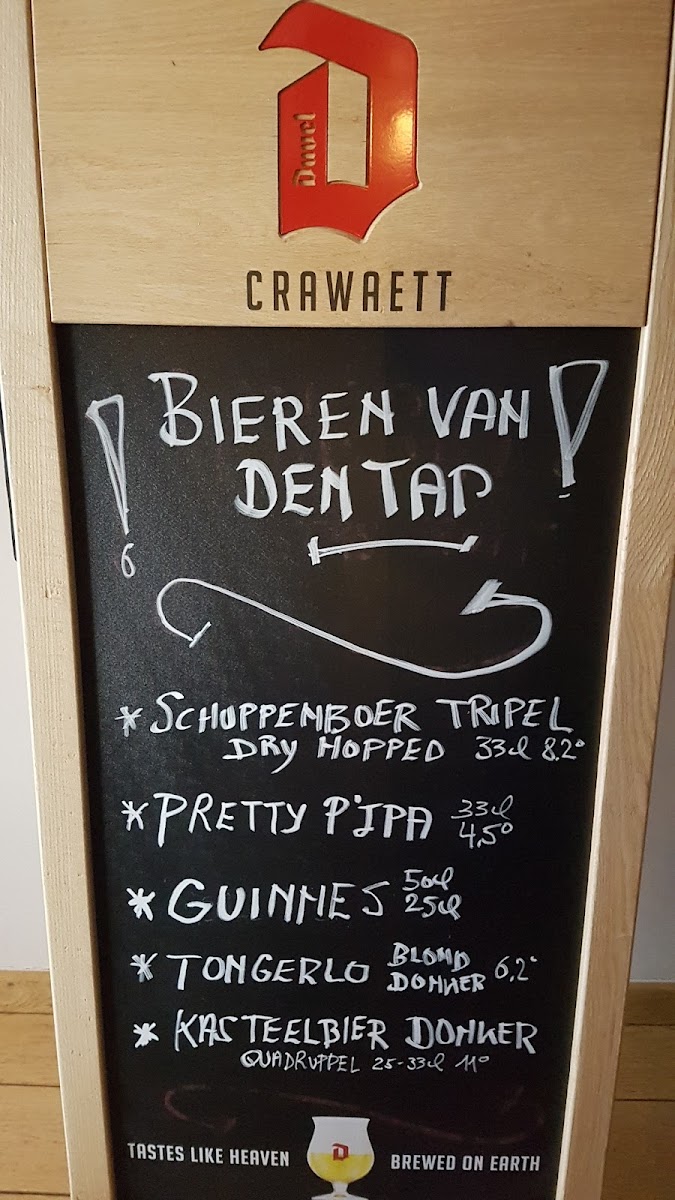 Duvel
CRAWAETT
BIEREN VAN
DEN TAP
* SCHUPPENBOER TRIPEL
DRY HOPPED 33cl 8.2°
* PRETTY P'IPA 33cl 4,5°
* GUINNES 50cl 25cl
* TONGERLO BLOND DONKER 6,2°
* KASTEELBIER DONKER
QUADRUPPEL 25-33cl 11°
TASTES LIKE HEAVEN D BREWED ON EARTH